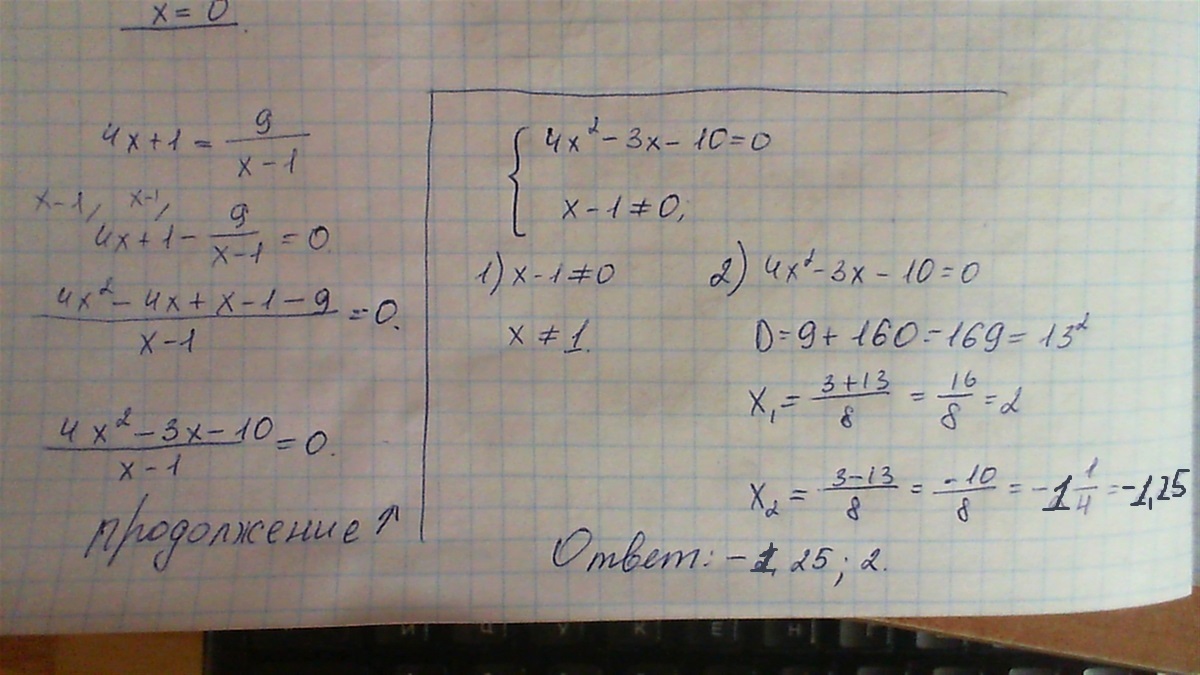 x = 0
4x+1 = 9/(x-1)
x-1/ x-1/
4x+1 - 9/(x-1) = 0.
(4x² - 4x + x - 1 - 9)/(x-1) = 0.
(4x² - 3x - 10)/(x-1) = 0.
продолжение ↑
{ 4x² - 3x - 10 = 0
x - 1 ≠ 0;
1) x-1 ≠ 0
x ≠ 1.
2) 4x² - 3x - 10 = 0
D = 9 + 160 = 169 = 13²
x₁ = (3+13)/8 = 16/8 = 2
x₂ = (3-13)/8 = -10/8 = -1 1/4 = -1,25
Ответ: -1,25; 2.
Й Ц У К Е Н